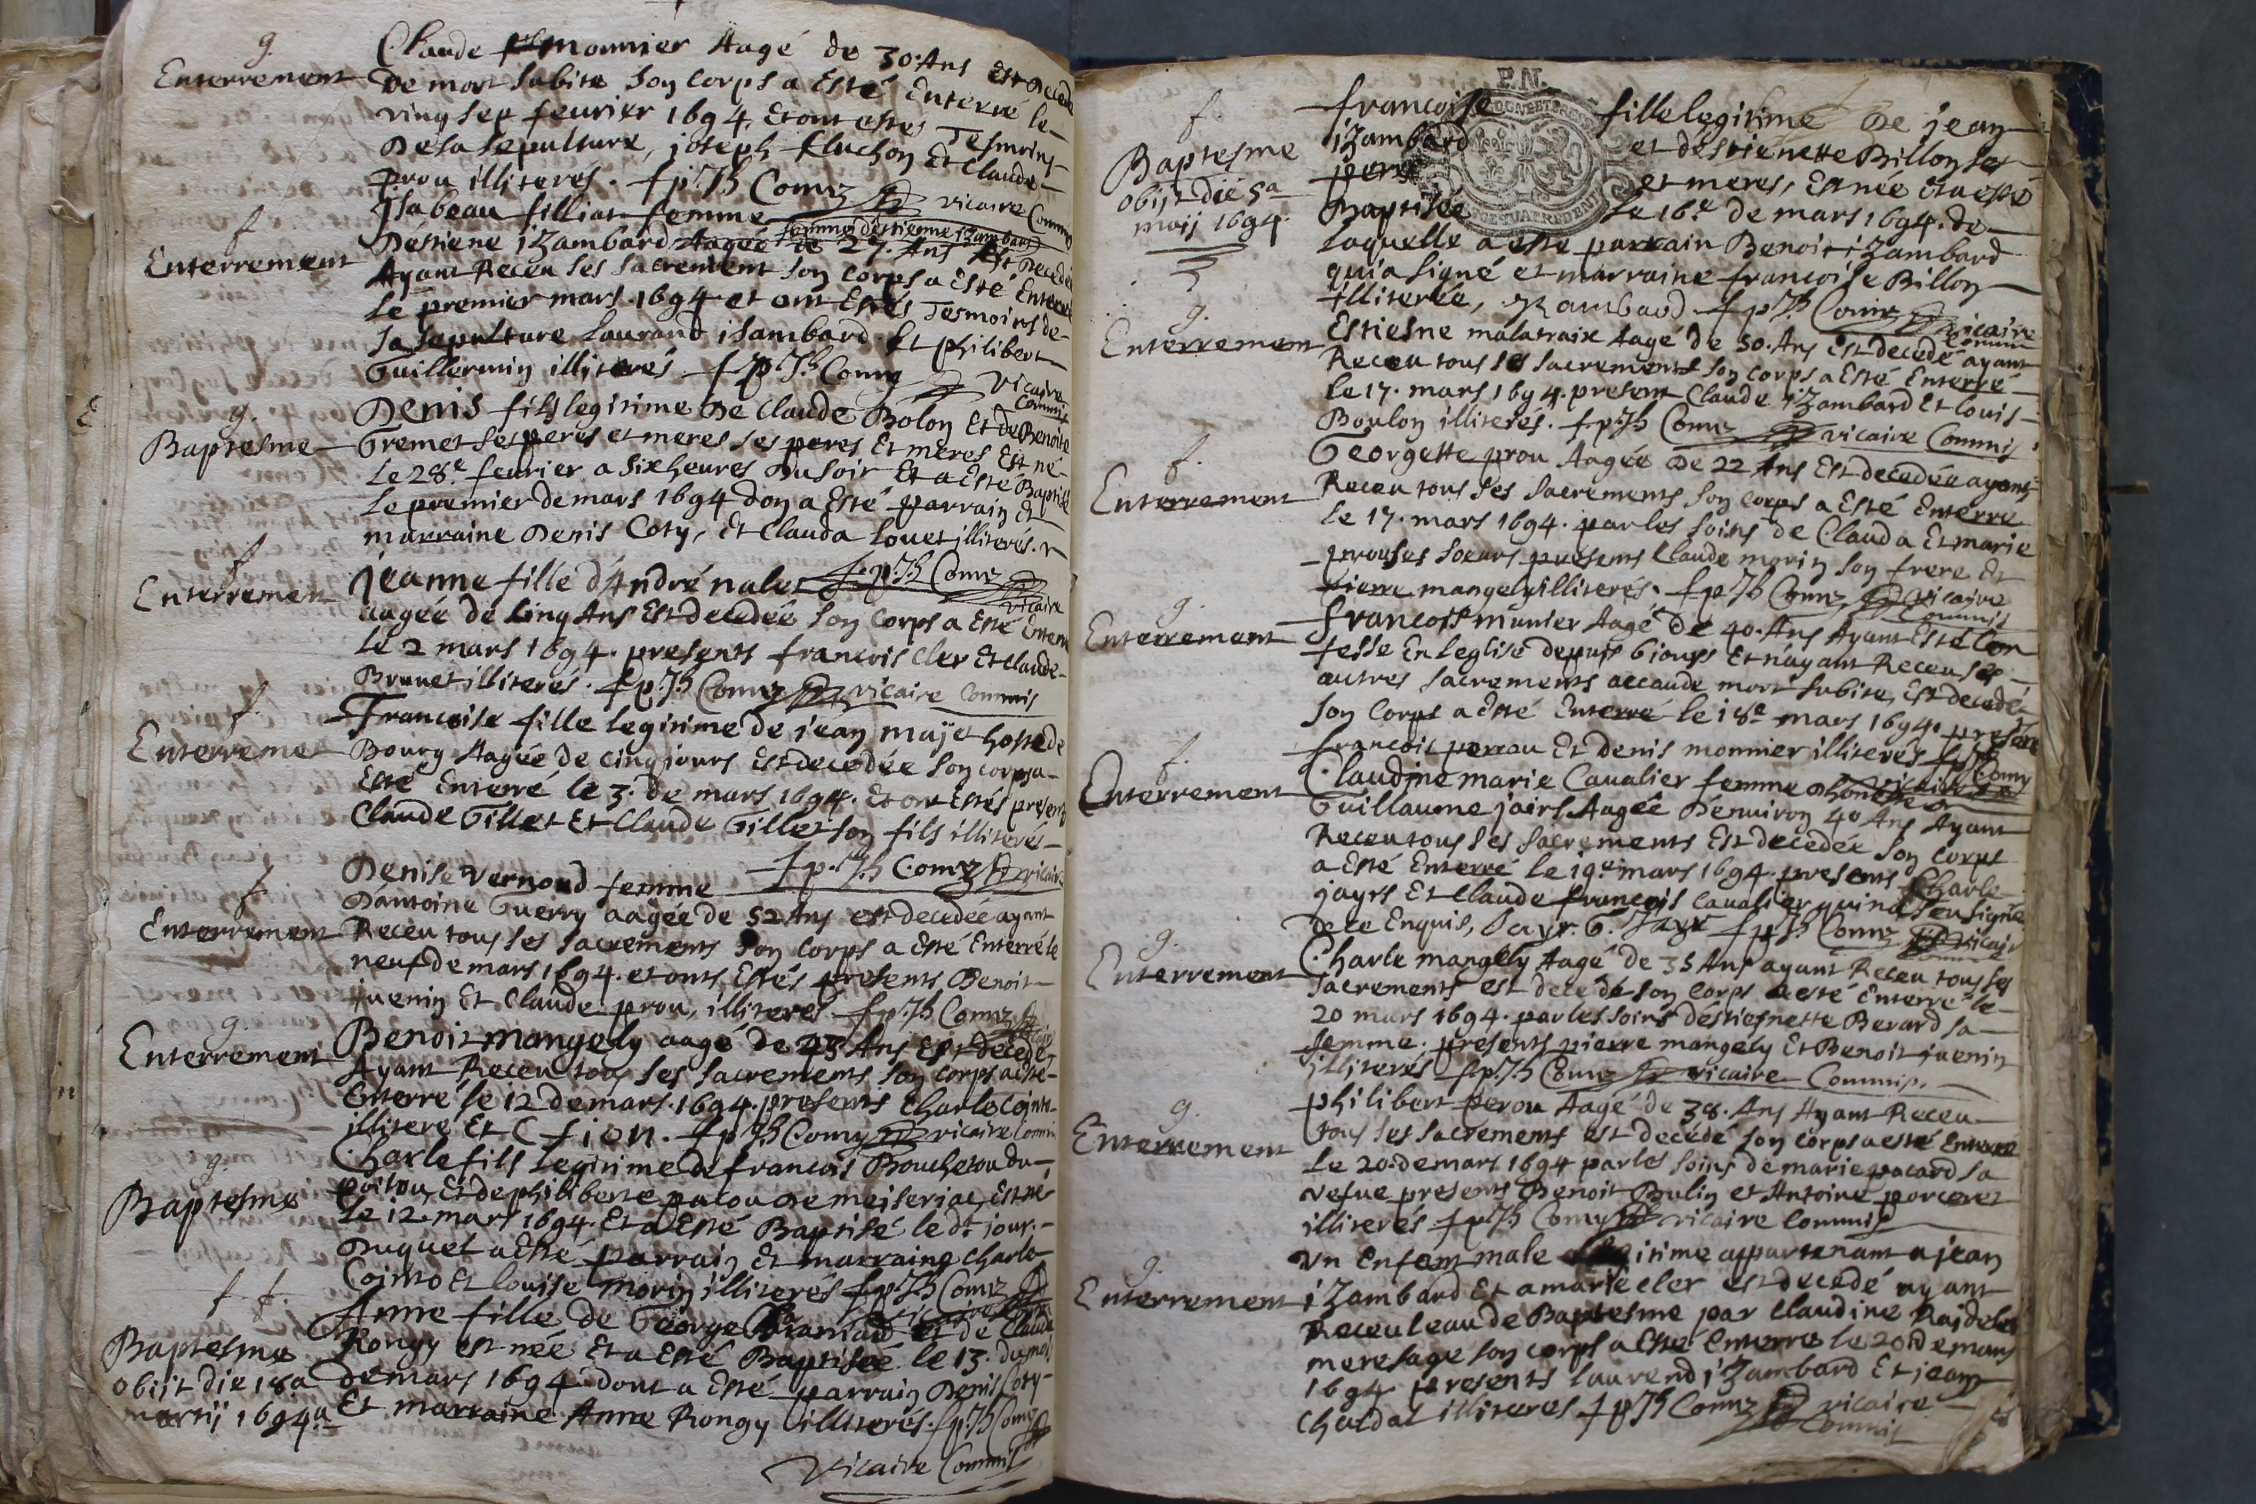 g.
Enterrement
Claude monnier Aagé de 30. Ans Est Decedé
De mort subite son corps a Esté Enterré le
ving sep feurier 1694. Et ont estes Tesmoins
De la sepulture, joseph fluchon Et Claude
prou illiterés. f p. Th Comz vicaire Commis
f
Enterrement
ysabeau filliat femme
Destiene iZambard Aagée de 27. Ans Est Decedée
femme destienne iZambard
Ayant Receu ses sacrement son corps a Esté Enterré
le premier mars 1694 et ont Estés Tesmoins de
sa sepulture laurand isambard Et philibert
Guillermin illiterés f p. Th Comz vicaire
Commis
g.
Baptesme
Denis fils legitime De Claude Bolon Et de Benoite
Gremet ses peres et meres ses peres Et meres Est né
le 28e. feurier a six heures Du soir Et a Esté Baptisé
le premier de mars 1694 don a Esté parrain Et
marraine Denis Coty, Et Clauda louet illiterés.
f. p. Th Comz
vicaire
f
Enterrement
Jeanne fille d'André nalet
aagée de Cinq Ans Est decedée son corps a Esté Enterré
le 2 mars 1694. presents francois Cler Et Claude
Brunet illiterés. f p. Th Comz vicaire Commis
f.
Enterremet
Francoise fille legitime de jean majet hoste de
Bourg Aagée de cinq jours Est decedée son corps a
Esté Enterré le 3. de mars 1694. Et ont Estés presents
Claude Gillet Et Claude Gillet son fils illiterés
f p. Th Comz vicaire
f
Enterrement
Denise vernoud femme
D'antoine Guerry aagée de 52 Ans est decedée ayant
Receu tous ses sacrements son corps a Esté Enterré le
neuf de mars 1694. et onts Estés presents Benoit
juenin Et Claude prou, illiterés f p. Th Comz
g.
Enterrement
Benoit mangely aagé de 43 Ans Est Decedé
Ayant Receu tous ses sacrements son corps a Esté
Enterré le 12 de mars. 1694. presents Charle Cointo
illiteré Et C fion. f p Th Comz vicaire Commis
g.
Baptesme
Charle fils legitime de francois Boucheton du
poitou, Et de philiberte pacou de meiseriac, Est né
le 12. mars 1694. Et a Esté Baptisé le dt. jour.
Duquel a Esté parrain Et marraine Charle
Cointo et louise morin illiterés f p Th Comz
f f.
Baptesme
obiit die 18a
martij 1694a
Anne fille de George Et de Claude
Rongy est née Et a Esté Baptisée le 13. du mois
De mars 1694 dont a Esté parrain Denis Coty
Et marraine Anne Rongy illiterés. f p. Th Comz
vicaire Commis
P.N.
f.
Baptesme
obijt die 5a
maij 1694.
francoise fille legitime De jean
iZambard et destienette Billon ses
peres et meres, Est née Et a esté
Baptisée le 16.e de mars 1694. de
laquelle a este parrain Benoit iZambard
qui a signé et marraine francoise Billon
illiterée, yZambard f p. Th Comz vicaire
Commis
g.
Enterrement
Estiesne malatraix Aagé de 50. Ans Est decedé ayant
Receu tous ses sacrements son corps a Esté Enterré
le 17. mars 1694. present Claude iZambard Et louis
Boulon illiterés. f p. Th Comz vicaire Commis
f.
Enterrement
Georgette prou Aagée De 22 Ans Est decedée ayant
Receu tous ses sacrements son corps a Esté Enterre
le 17. mars 1694. par les soins de Clauda Et marie
prou ses soeurs presents Claude morin son frere Et
pierre mangely illiterés. f p Th Comz vicaire
Commis
g.
Enterrement
francois munier Aagé de 40. Ans Ayant Esté Con
fesse En l eglise depuis 6 jours Et n'ayant Receu ses
autres sacrements a cause mort subite, Est decedé
son Corps a Esté Enterré le 18e mars 1694. present
francois perrau Et Denis monnier illiterés f p Th Comz
f.
Enterrement
Claudine marie Caualier femme
Guillaume jairs. Aagée D'enuiron 40 Ans Ayant
Receu tous ses sacrements Est decedée son corps
a Esté Enterré le 19e. mars 1694. presents Charle
jayrs Et Claude francois Caualier qui n'a seu signé
de ce Enquis, G. Jayr f p Th Comz vicair
g.
Enterrement
Charle mangely Aagé de 35 Ans ayant Receu tous ses
sacrements est decedé son corps a esté Enterré le
20 mars 1694. par les soins destiesnette Berard sa
femme. presents pierre mangely Et Benoit juenin
illiterés f p. Th Comz vicaire Commis.
g.
Enterrement
philibert perou Aagé de 38. Ans Ayant Receu
tous ses sacrements est decédé son corps a esté Enterre
le 20. de mars 1694 par les soins de marie pacard sa
vefue presents Benoit Bulin et Antoine porceret
illiterés f p Th Comz vicaire Commis
g.
Enterrement
Vn Enfant male appartenant a jean
iZambard Et a marie cler est decedé ayant
Receu leau de Baptesme par Claudine
mere sage son corps a Esté Enterre le 20 de mars
1694 presents laurend iZambard Et jean
Chaldal illiteres f p Th Comz vicaire
Commis